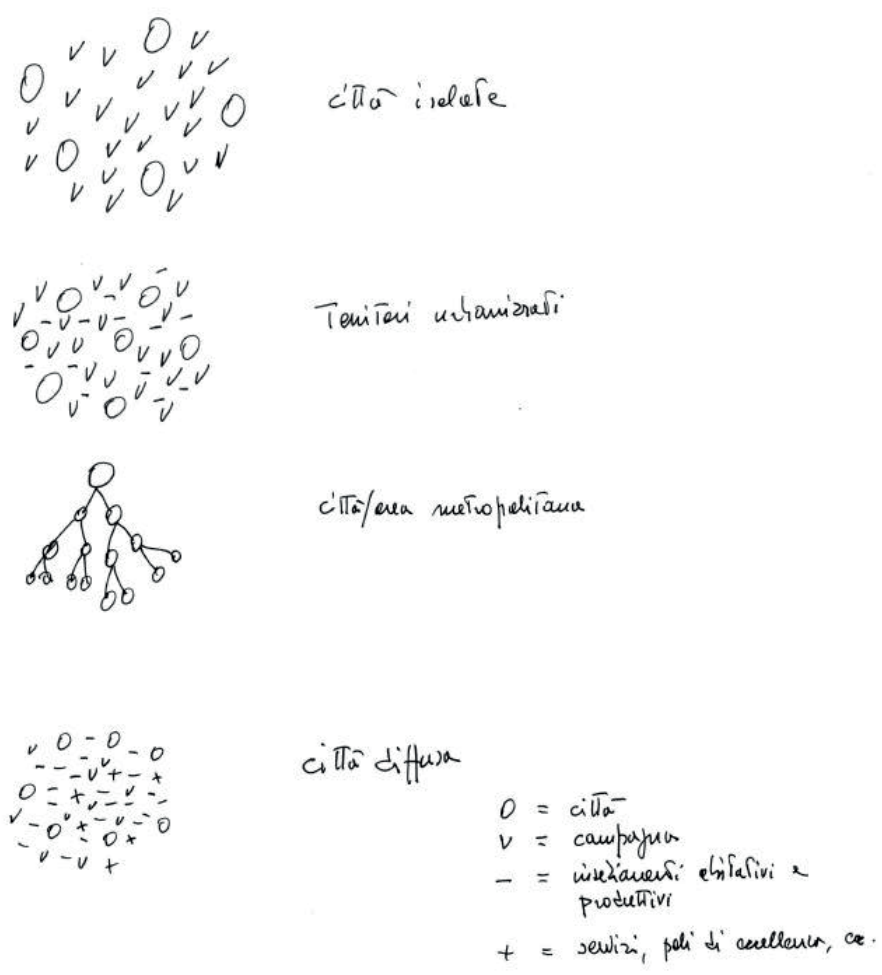 città isolate
Territori urbanizzati
città/area metropolitana
città diffusa
O = città
v = campagna
- = insediamenti abitativi e
produttivi
+ = servizi, poli di eccellenza, ec.